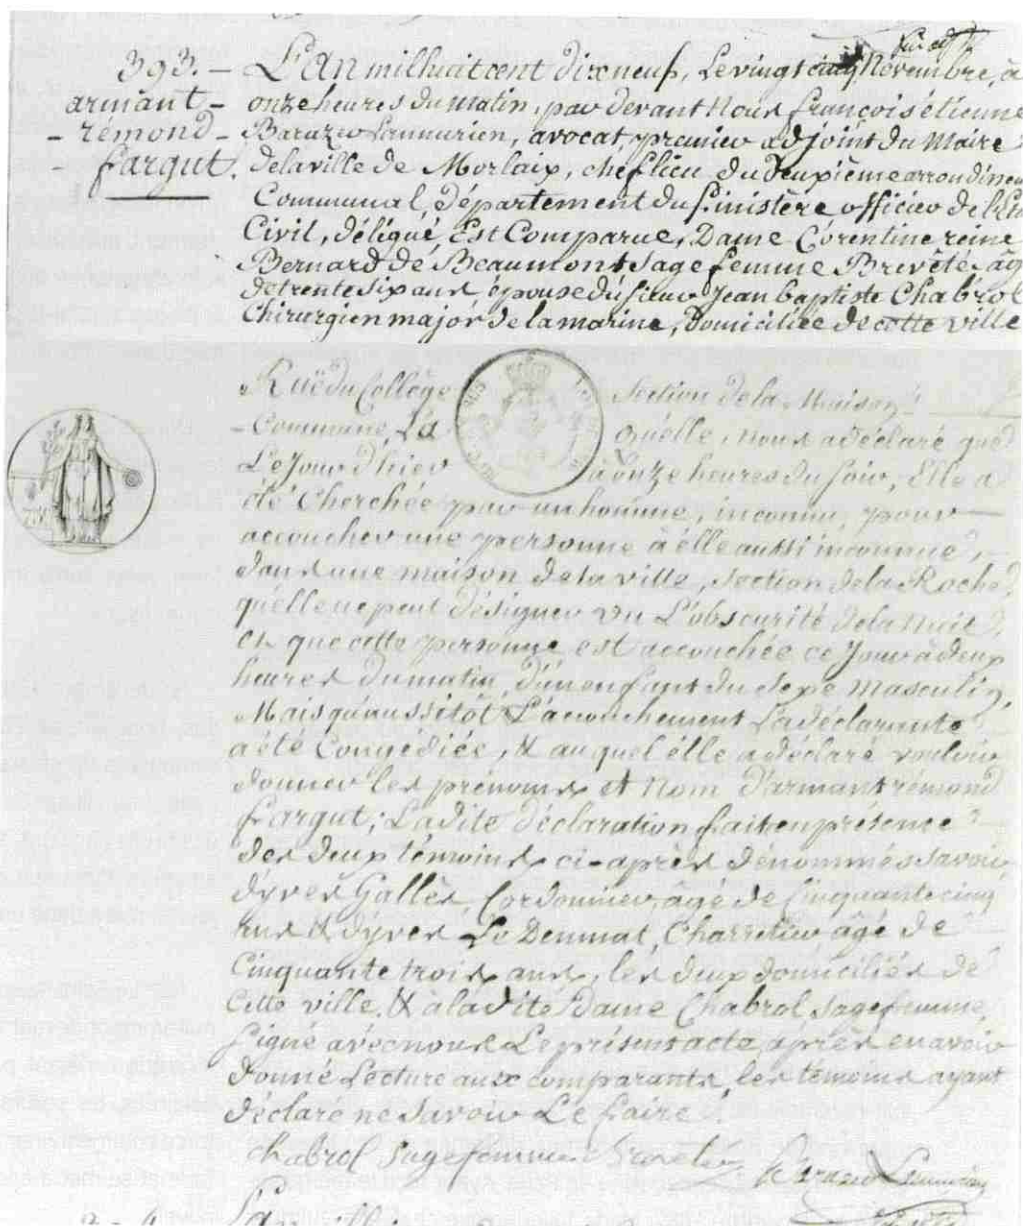 393. –
armant –
– rémond –
– fargut.
L'An mil huit cent dix neuf, Le vingt cinq Novembre, à
onze heures du matin, par devant Nous françois étienne
Barazer Lannurien, avocat, premier adjoint du Maire
de la ville de Morlaix, chef lieu du Deuxième arrondissem
Communal, département du finistère, officier de l'Eta
Civil, délégué, Est Comparue, Dame Corentine reine
Bernard de Beaumont sage femme Breveté, âg
de trente six ans, épouse du sieur Jean baptiste Chabrol
Chirurgien major de la marine, Domiciliée de cette ville
Ruë du Collège Section de la Maison
Commune, La quelle, nous a déclaré que
Le Jour d'hier à onze heures du soir, Elle a
été Cherchée par un homme, inconnu, pour
accoucher une personne à elle aussi inconnue,
dans une maison de la ville, section de la Roche,
qu'elle ne peut désigner vu L'obscurité de la nuit,
et que cette personne est accouchée ce Jour à deux
heures du matin, d'un enfant du sexe Masculin,
Mais qu'aussitôt L'accouchement La déclarante
a été Congédiée, & au quel elle a déclaré vouloir
donner les prénoms et Nom D'armant rémond
fargut; La dite déclaration fait en présence
des deux témoins ci-après dénommés savoir
d'yves Gallès Cordonnier, âgé de Cinquante cinq
ans & d'yves Le Denmat, Charretier, âgé de
Cinquante trois ans, les deux domiciliés de
Cette ville, & à la dite Dame Chabrol sage femme,
Signé avec nous Le présent acte, après en avoir
donné Lecture aux comparants, les témoins ayant
déclaré ne savoir Le faire.
Chabrol Sage femme Brevetée Barazer Lannurien